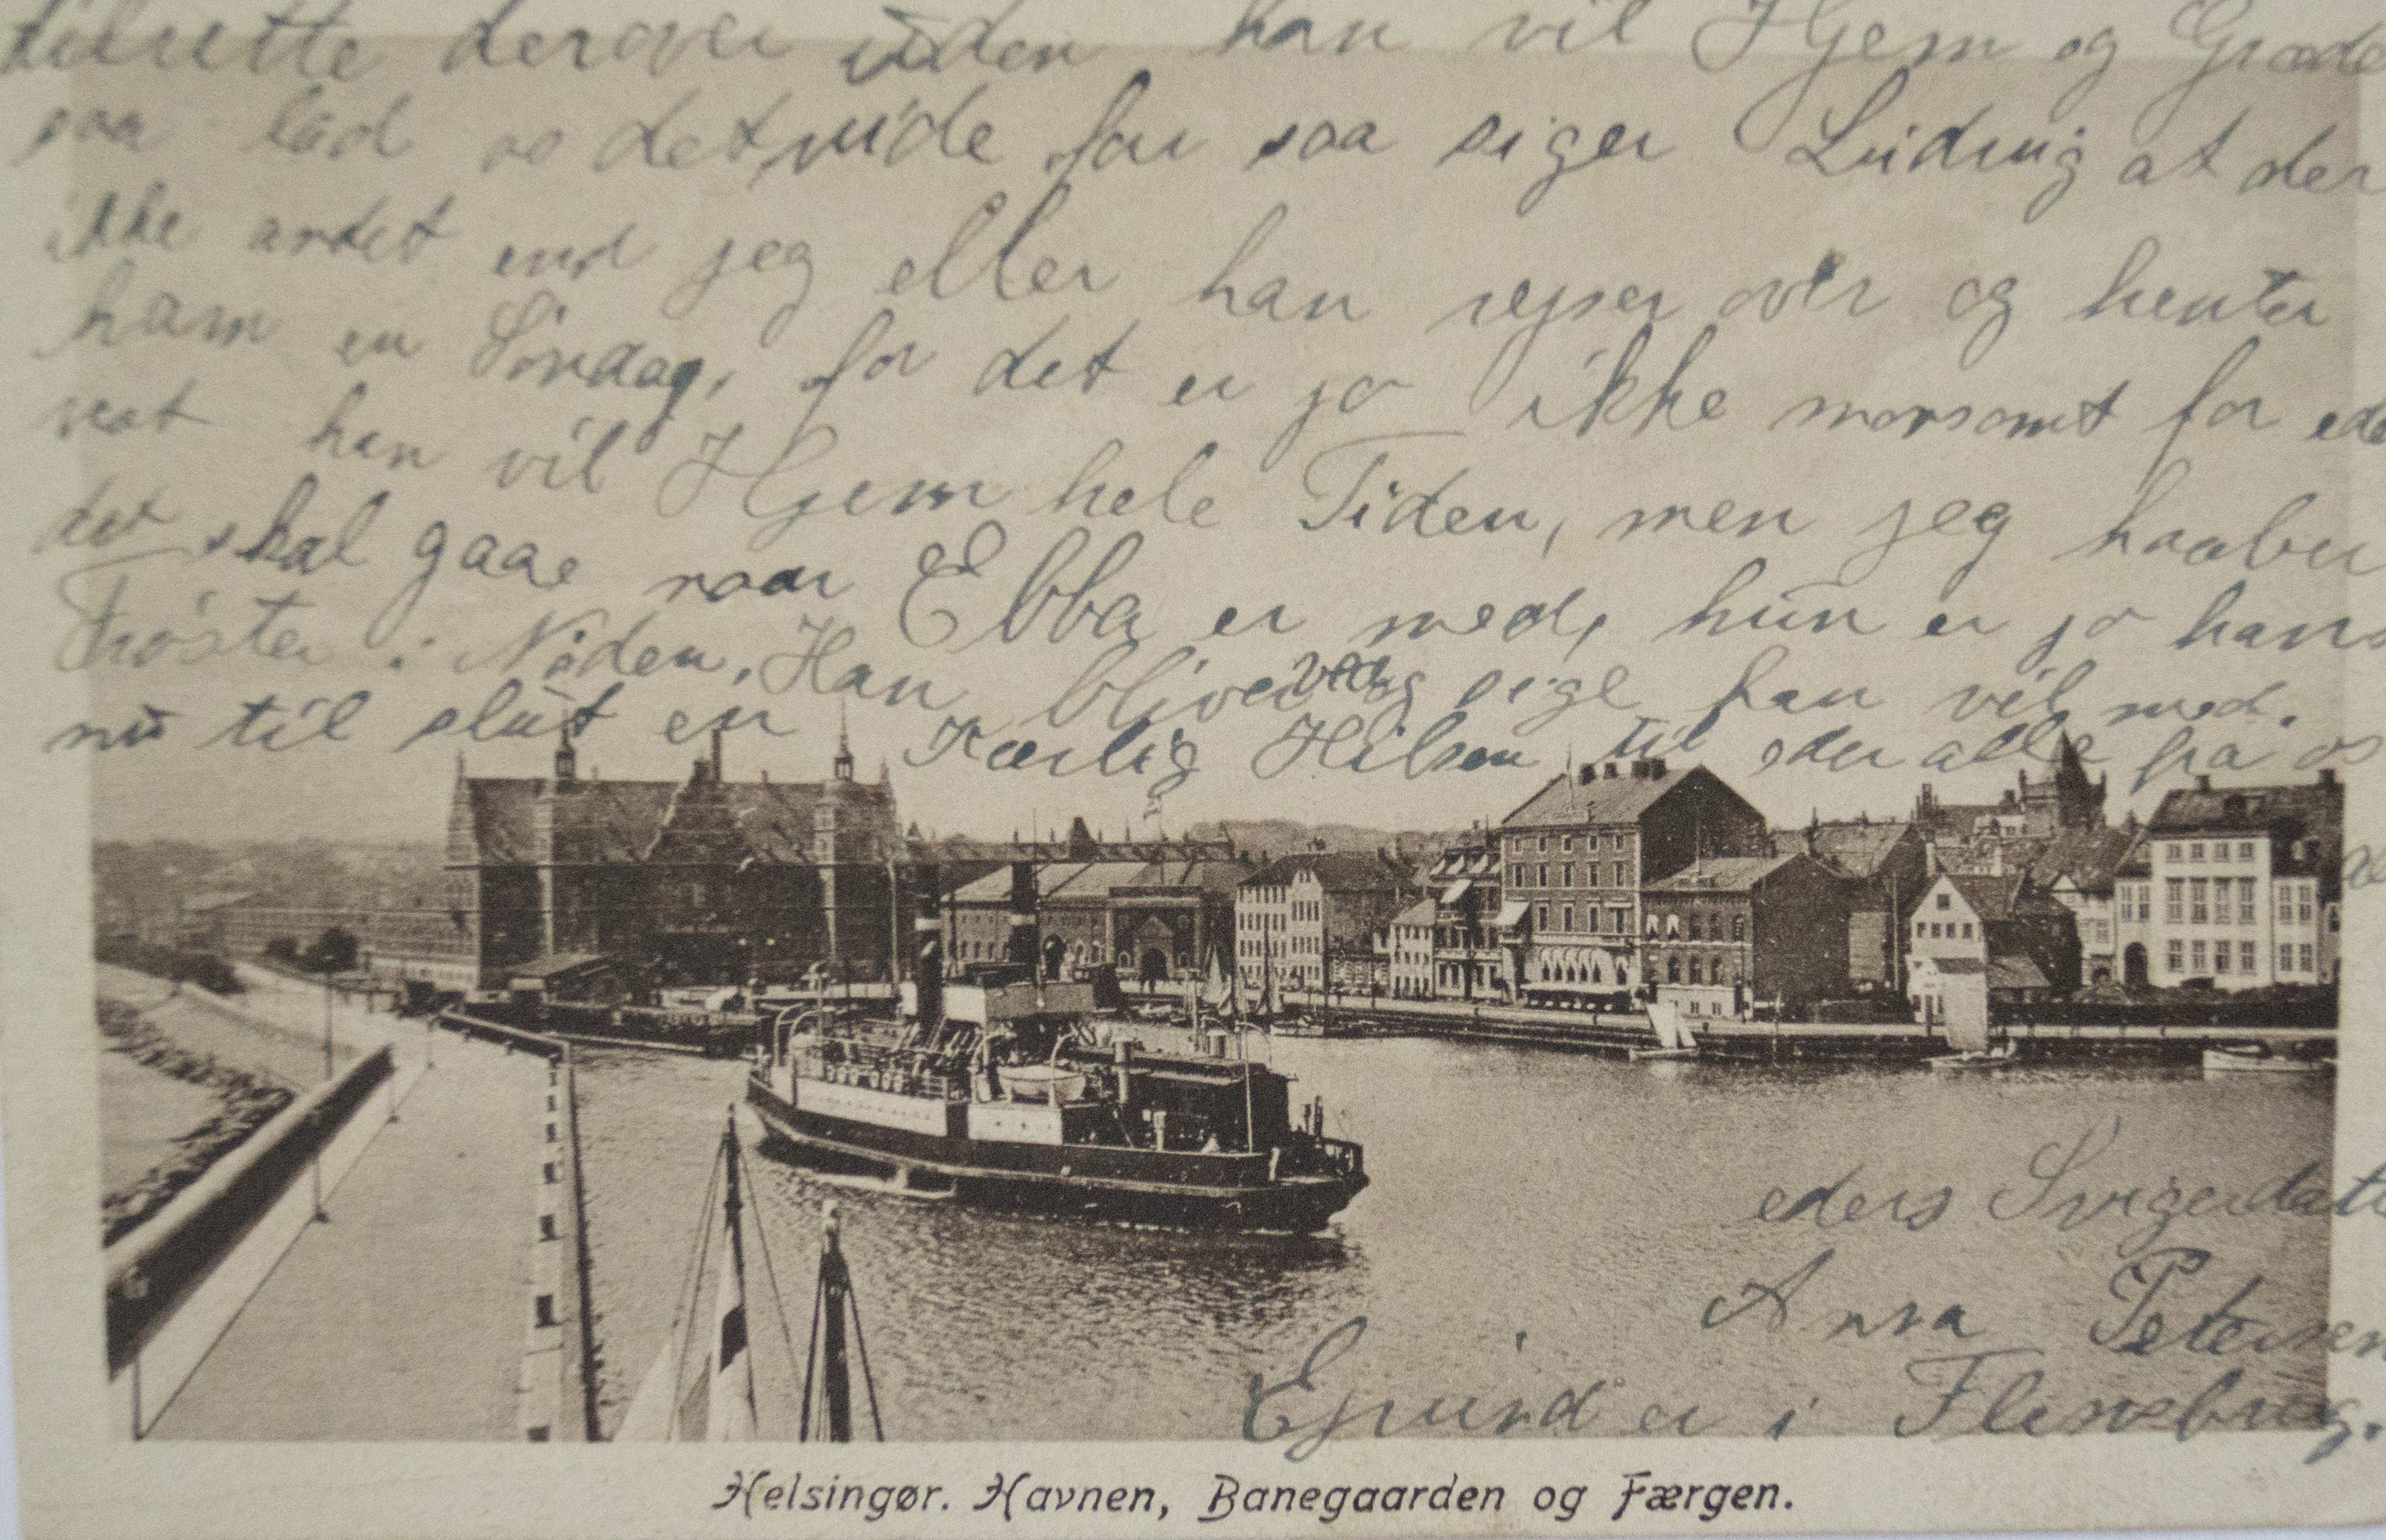 tilrette derover uden han vil Hjem og Græde
saa lad os det vide for saa siger Ludvig at der
ikke andet end jeg eller han rejser over og henter
ham en Søndag, for det er jo ikke morsomt for ede
vist han vil Hjem hele Tiden, men jeg haaber
det skal gaae naar Ebba er med, hun er jo hans
Trøster i Nøden, Han bliver ved og sige han vil med.
nu til slut en Kærlig Hilsen til eder alle fra os
eders Svigerdatt
Anna Petersen
Ejvind er i Flensbrug.
Helsingør. Havnen, Banegaarden og Færgen.